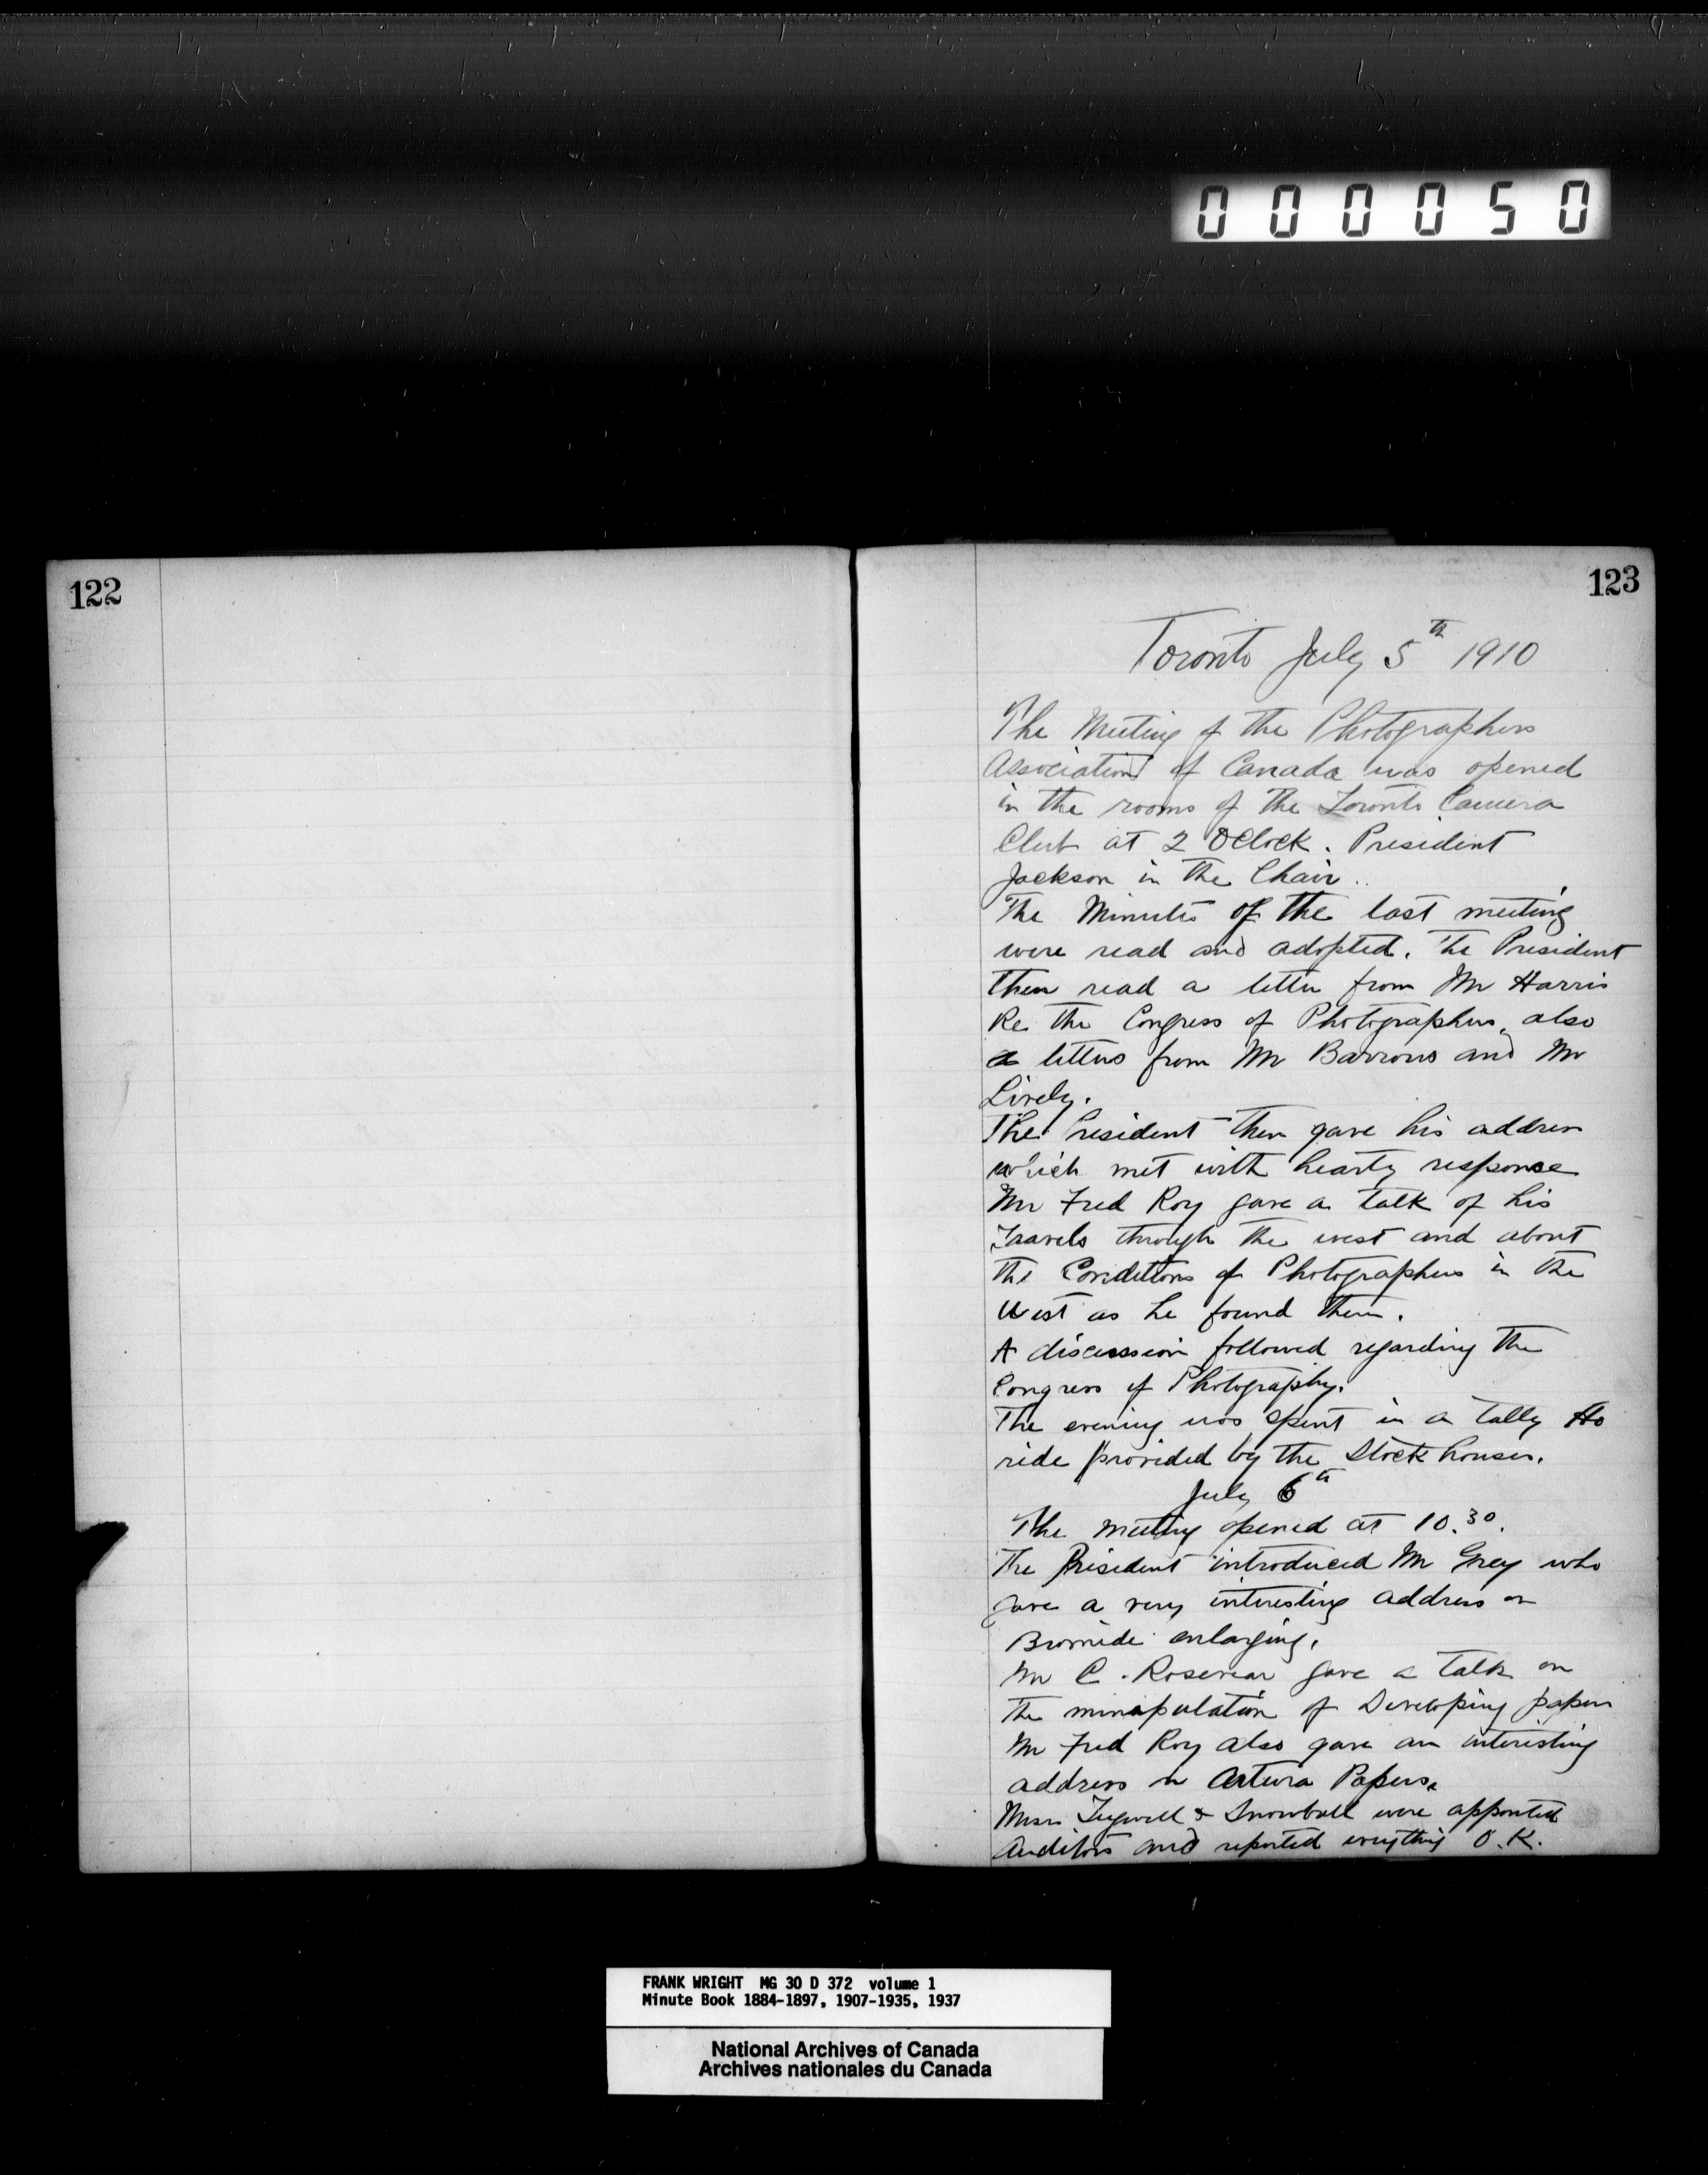 000050
122
123
Toronto July 5th 1910
The Meeting of the Photographers
Association of Canada was opened
in the rooms of the Toronto Camera
Club at 2 OClock. President
Jackson in the Chair..
The Minutes of the last meeting
were read and adopted. The President
then read a letter from Mr Harris
Re the Congress of Photographers, also
letters from Mr Barrows and Mr
Lively.
The President then gave his address
which met with hearty response
Mr Fred Roy gave a talk of his
Travels through the west and about
the Conditions of Photographers in the
West as he found them.
A discussion followed regarding the
Congress of Photography.
The evening was spent in a Tally Ho
ride provided by the Stock houses.
July 6th
The meeting opened at 10.30.
The President introduced Mr Grey who
gave a very interesting address on
Bromide enlarging.
Mr C. Rosevear gave a talk on
the minapulation of Developing papers
Mr Fred Roy also gave an interesting
address on Artura Papers.
Tugwell & Snowball were appointed
Auditors and reported everything O.K.
FRANK WRIGHT MG 30 D 372 volume 1
Minute Book 1884-1897, 1907-1935, 1937
National Archives of Canada
Archives nationales du Canada